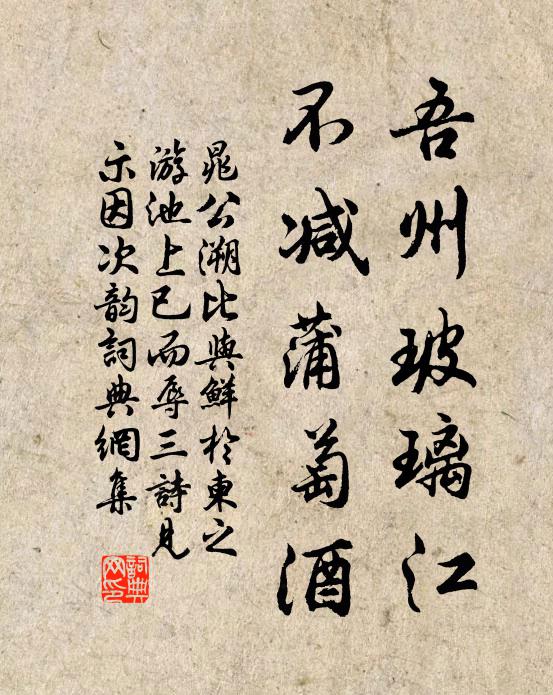 吾州玻璃江
不减蒲萄酒
晁公溯比與鮮於東之
游池上已而辱三詩見
示因次韵詞典網集
詞典網印